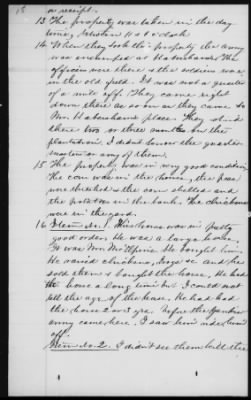 a receipt.
13 The property was taken in the day
time, between 11 & 1 o'clock
14 When they took the property the army
was encamped at Habershams. The
officers were there & the soldiers were
in the old field. It was not a quarter
of a mile off. They came right
down there as soon as they came to
Mr. Habershams place. They staid
there two or three months on the
plantation. I didn't know the quarter
master or any of them.
15 The property was in very good condition
The corn was in the house, the peas
were thrashed & the corn shelled and
the potatoes in the bank. The chickens
were in the yard.
16 Item No. 1. This horse was in pretty
good order. He was a large horse.
It was Mr. He bought him.
He raised chickens, hogs &c and he
sold them & bought the horse. He had
the horse a long time but I could not
tell the age of the horse. He had had
the horse 2 or 3 yrs. before the Yankee
army came here. I saw him ridden
off.
Item No. 2. I didn't see them kill the